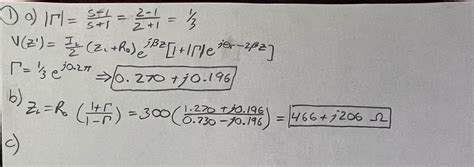 ① a) |Γ| = (S-1)/(S+1) = (2-1)/(2+1) = 1/3
V(z') = I_L/2 (Z_L + R_0) e^{jβz} [1+|Γ| e^{jθ_Γ - 2βz}]
Γ = 1/3 e^{j0.2π} ⇒ 0.270 + j0.196
b) Z_L = R_0 ((1+Γ)/(1-Γ)) = 300 ((1.270 + j0.196)/(0.730 - j0.196)) = 466 + j206 Ω
c)